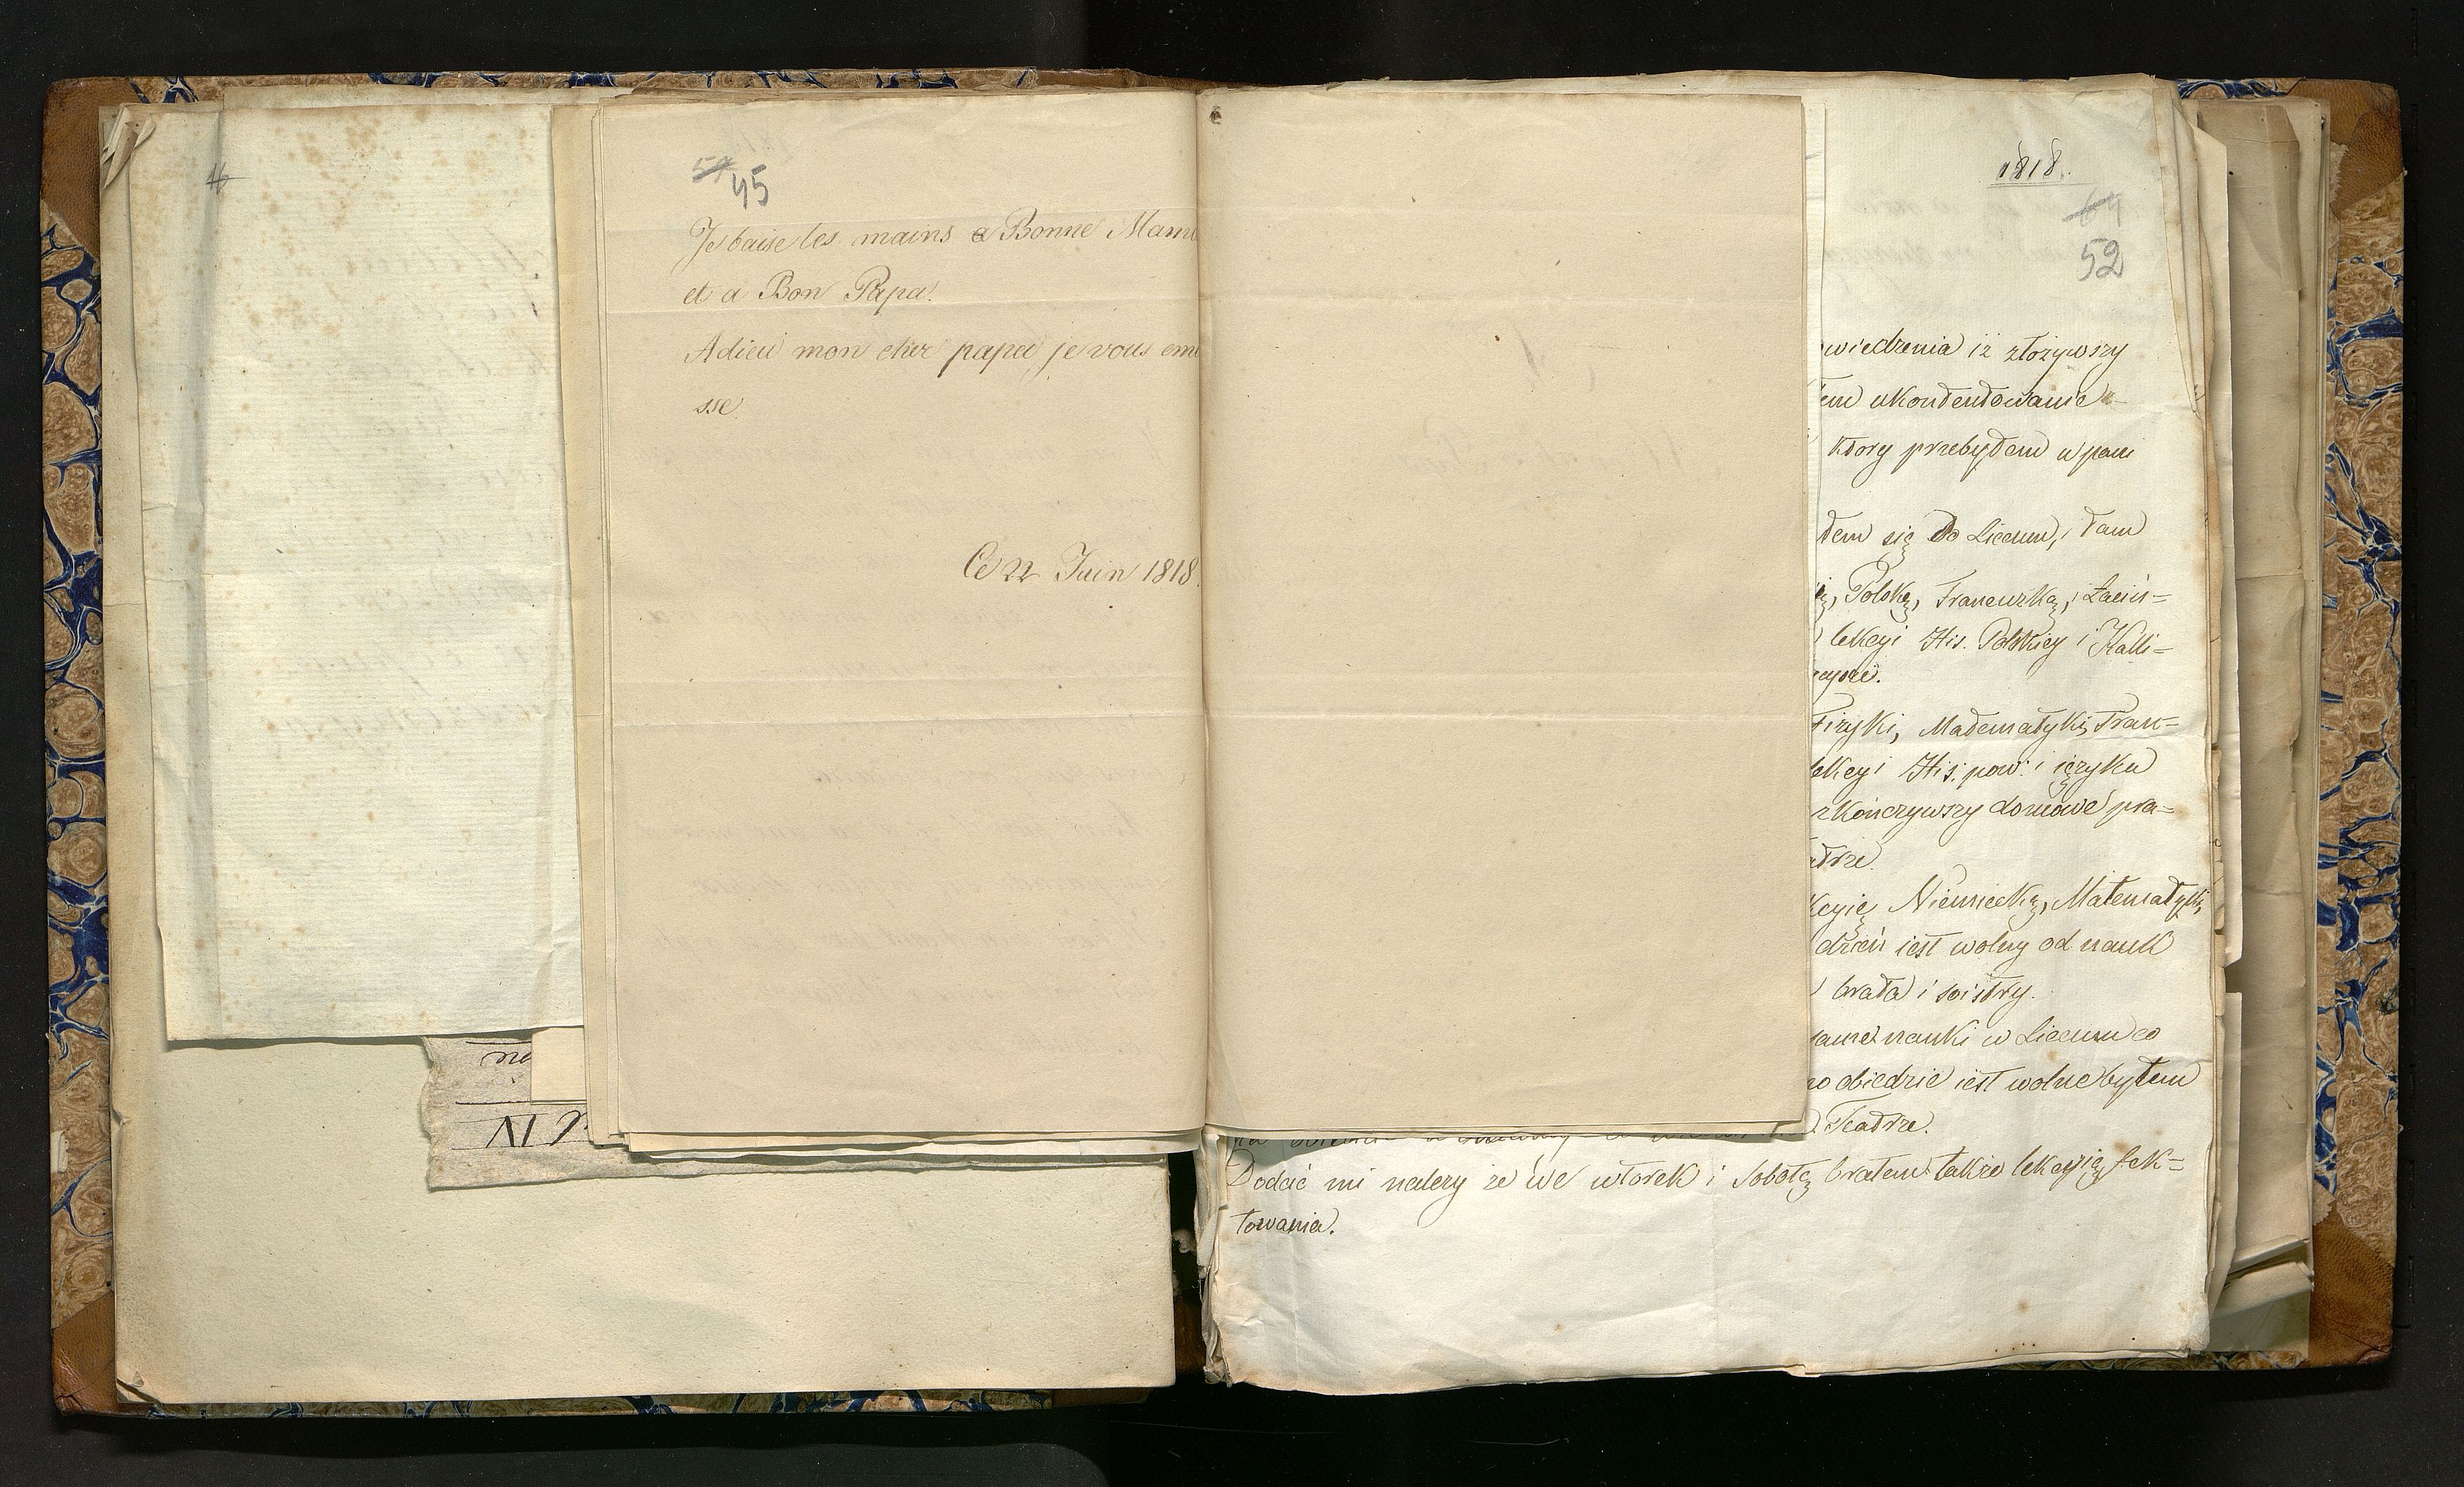 45
Je baise les mains a Bonne Mam
et a Bon Papa.
Adieu mon cher papa je vous em
sse
Ce 22 Juin 1818.
1818.
64
52
wiedzenia iż złożywszy
tem ukontentowanie
ktory przebyłem w
łem się do Liceum, tam
Polską, Francuzką, Łaciń=
lekcyi His. Polskiey i Kalli=
Fizyki, Matematyki, Fran=
His: pow: i ięzyku
zkończywszy domowe pra=
atrze.
kcyię Niemiecką, Matematyki,
dzień iest wolny od nauk
brata i siostry.
same nauki w Liceum co
po obiedzie iest wolne byłem
Teatrze.
Dodać mi należy że we wtorek i Sobotę brałem także lekcyię fek=
towania.
16
IV